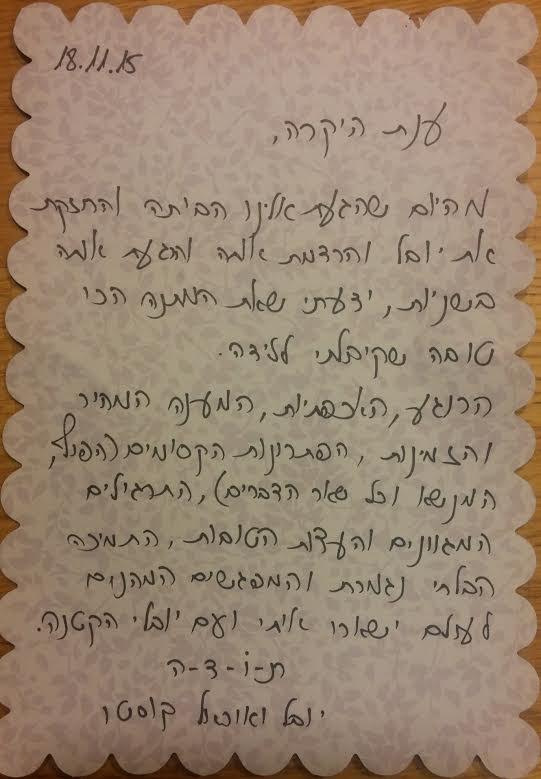 18.11.15
ענת היקרה,
מהיום שהגעת אלינו הביתה והחזקת
את יובל והרדמת אותה והרגעת אותה
בשניות, ידעתי שאת המתנה הכי
טובה שקיבלתי ללידה.
הרוגע, האכפתיות, המענה המהיר
והזמינות, הפתרונות הקסומים (הפוף,
המנשא וכל שאר הדברים), התרגילים
המגוונים והעצות הטובות, התמיכה
הבלתי נגמרת והמפגשים המהנים
לעולם ישארו איתי ועם יובלי הקטנה.
ת-ו-ד-ה
יובל ואוראל קוסטו